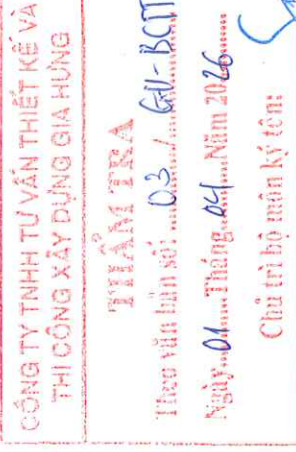 CÔNG TY TNHH TƯ VẤN THIẾT KẾ VÀ
THI CÔNG XÂY DỰNG GIA HƯNG
THẨM TRA
Theo văn bản số: 03 / GH-BCTT
Ngày 01 Tháng 04 Năm 2026
Chủ trì bộ môn ký tên: